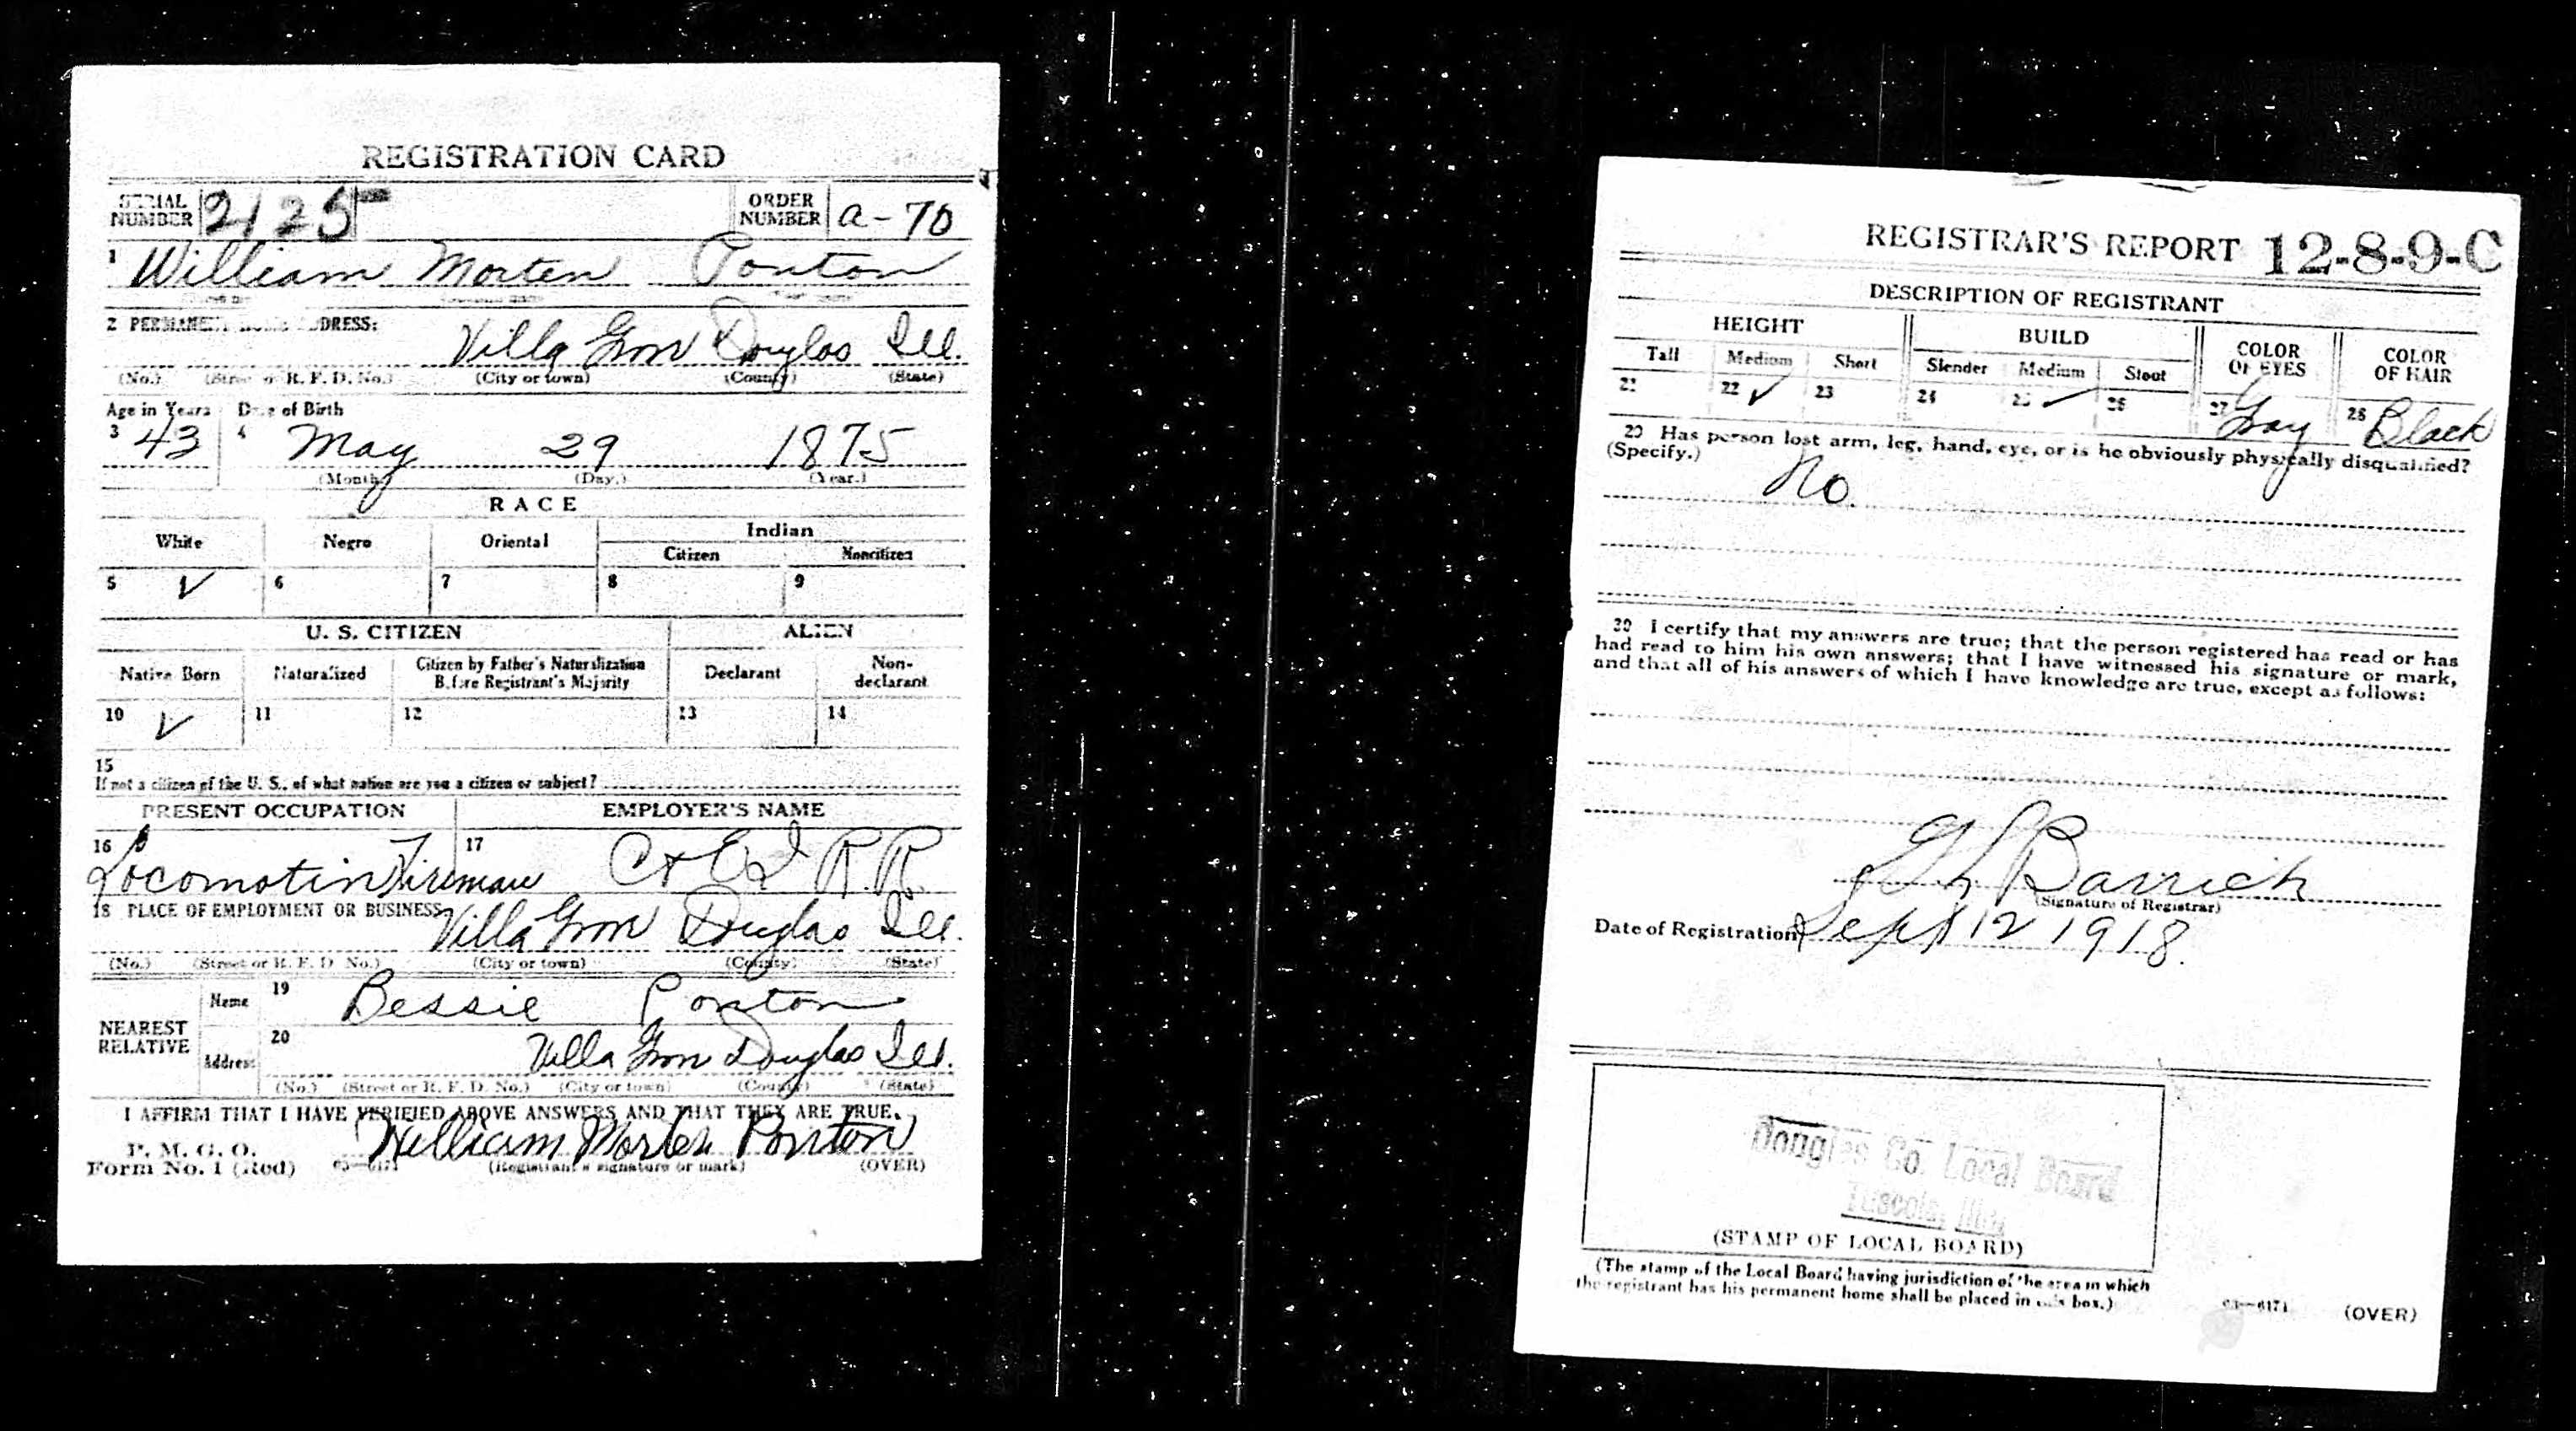 REGISTRATION CARD
SERIAL NUMBER 2125 ORDER NUMBER a-70
1 William Morten Ponton
2 PERMANENT HOME ADDRESS:
Villa Grov Douglas Ill.
(No.) (Street or R. F. D. No.) (City or town) (County) (State)
Age in Years Date of Birth
3 43 4 May 29 1875
(Month.) (Day.) (Year.)
RACE
White Negro Oriental Indian
Citizen Noncitizen
5 ✓ 6 7 8 9
U. S. CITIZEN ALIEN
Native Born Naturalized Citizen by Father's Naturalization Before Registrant's Majority Declarant Non-declarant
10 ✓ 11 12 13 14
15
If not a citizen of the U. S., of what nation are you a citizen or subject?
PRESENT OCCUPATION EMPLOYER'S NAME
16 Locomotiv Fireman 17 C & E I R. R.
18 PLACE OF EMPLOYMENT OR BUSINESS
Villa Grov Douglas Ill.
(No.) (Street or R. F. D. No.) (City or town) (County) (State)
NEAREST RELATIVE
Name 19 Bessie Ponton
Address 20 Villa Grov Douglas Ill.
(No.) (Street or R. F. D. No.) (City or town) (County) (State)
I AFFIRM THAT I HAVE VERIFIED ABOVE ANSWERS AND THAT THEY ARE TRUE.
P. M. G. O.
Form No. 1 (Red) 03—6171 William Morten Ponton
(Registrant's signature or mark) (OVER)
REGISTRAR'S REPORT 12-8-9-C
DESCRIPTION OF REGISTRANT
HEIGHT BUILD COLOR OF EYES COLOR OF HAIR
Tall Medium Short Slender Medium Stout
21 22 ✓ 23 24 25 ✓ 26 27 Gray 28 Black
29 Has person lost arm, leg, hand, eye, or is he obviously physically disqualified?
(Specify.) No.
30 I certify that my answers are true; that the person registered has read or has
had read to him his own answers; that I have witnessed his signature or mark,
and that all of his answers of which I have knowledge are true, except as follows:
Barrick
(Signature of Registrar)
Date of Registration Sept 12 1918.
Douglas Co. Local Board
Tuscola, Ills.
(STAMP OF LOCAL BOARD)
(The stamp of the Local Board having jurisdiction of the area in which
the registrant has his permanent home shall be placed in this box.)
03—6171 (OVER)